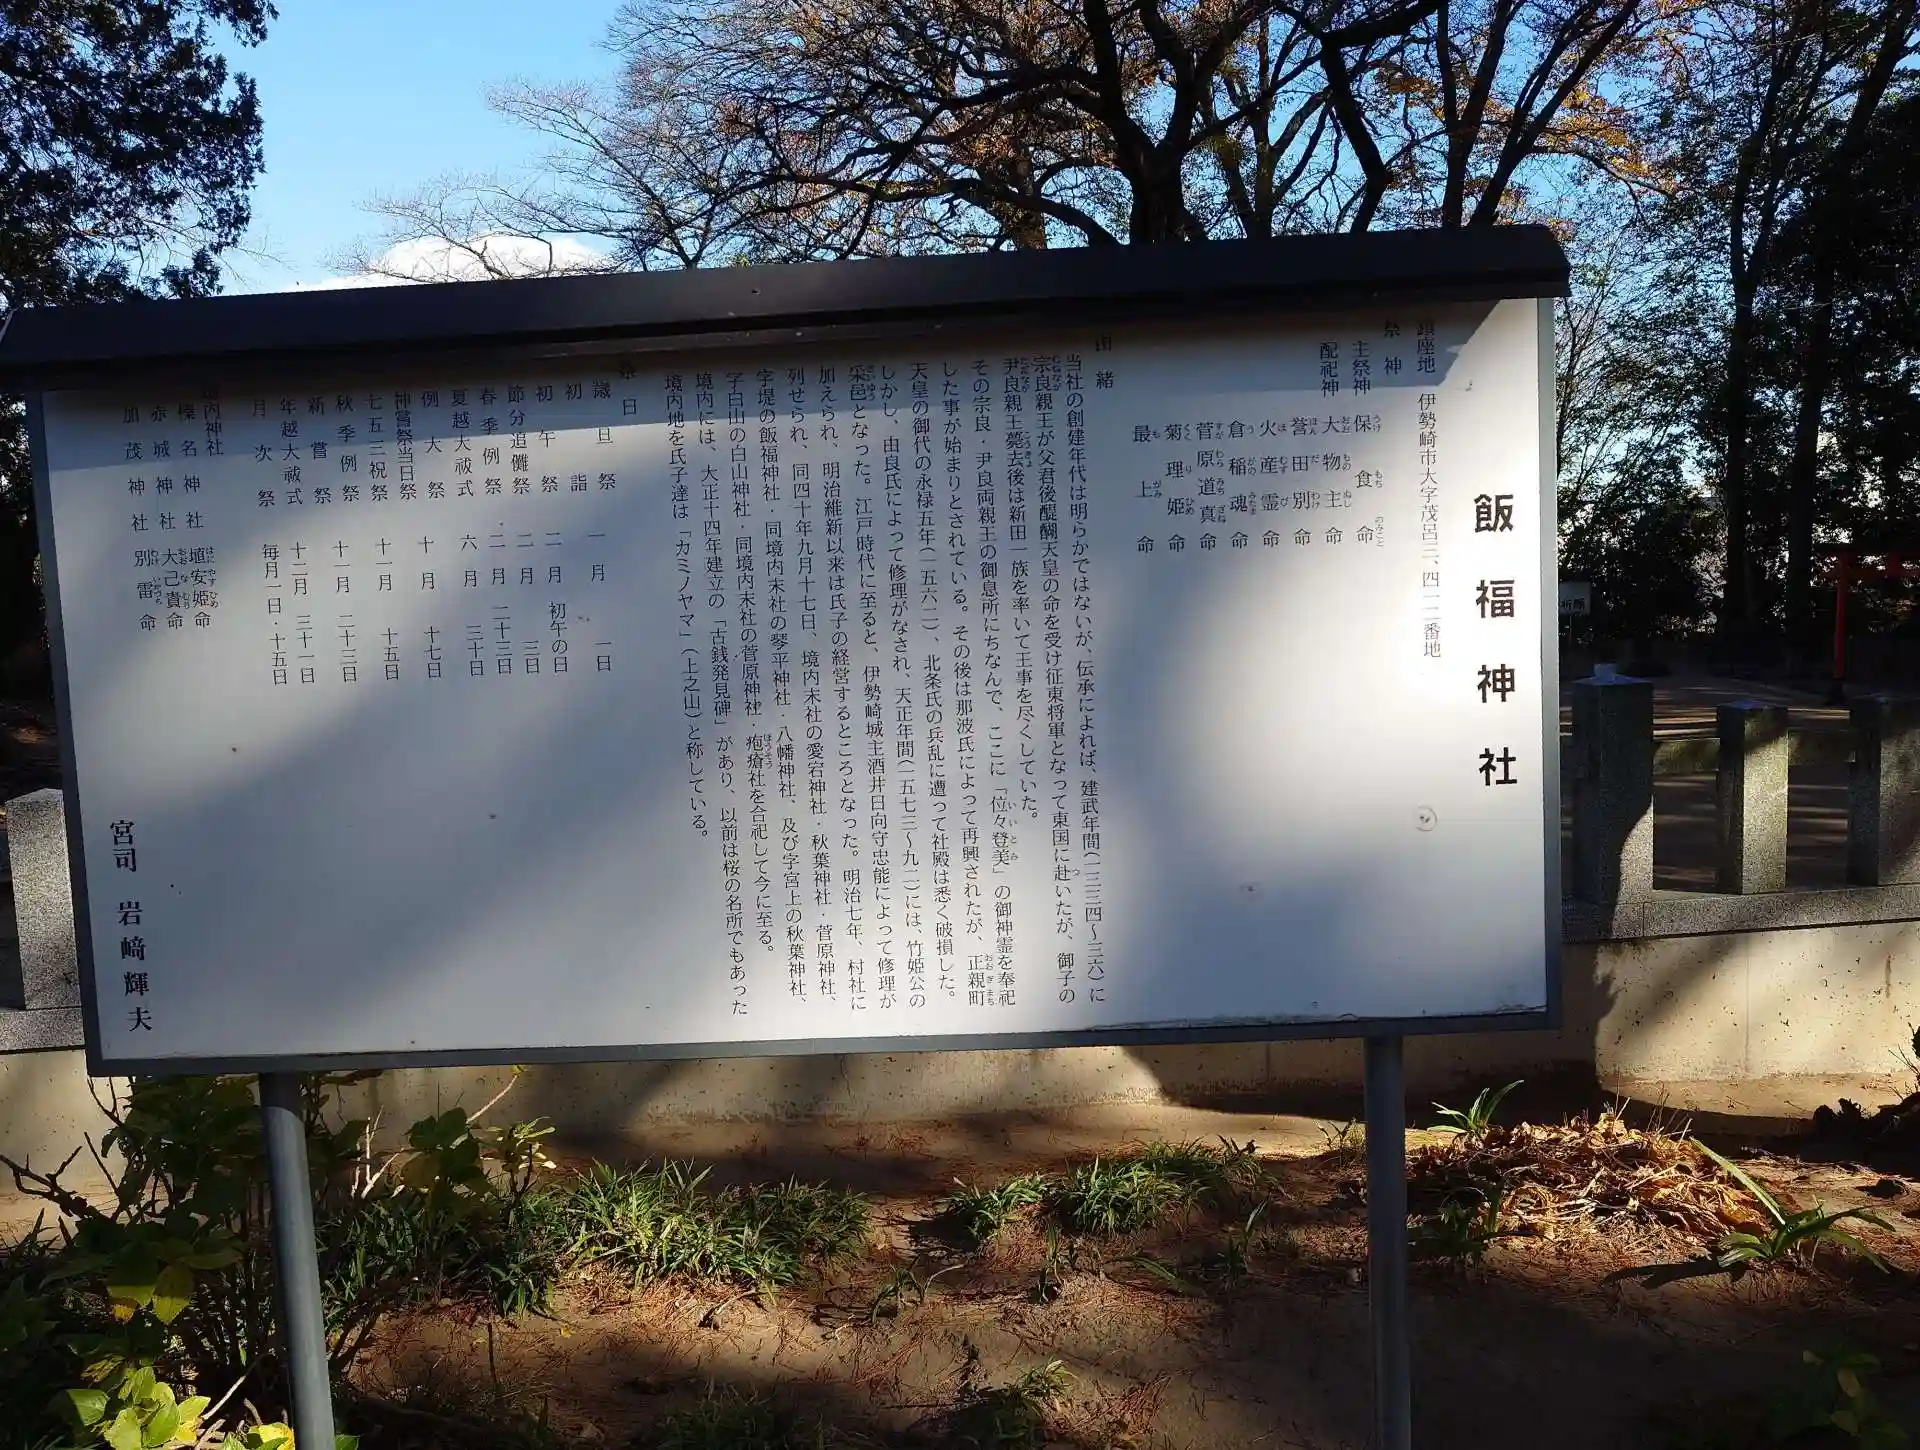 飯福神社
鎮座地 伊勢崎市大字茂呂三、四一二番地
祭神
主祭神 保食命
配祀神 大物主命
誉田別命
火産霊命
倉稲魂命
菅原道真命
菊理姫命
最上命
由緒
当社の創建年代は明らかではないが、伝承によれば、建武年間(一三三四~三六)に
宗良親王が父君後醍醐天皇の命を受け征東将軍となって東国に赴いたが、御子の
尹良親王薨去後は新田一族を率いて王事を尽くしていた。
その宗良・尹良両親王の御息所にちなんで、ここに「位々登美」の御神霊を奉祀
した事が始まりとされている。その後は那波氏によって再興されたが、正親町
天皇の御代の永禄五年(一五六二)、北条氏の兵乱に遭って社殿は悉く破損した。
しかし、由良氏によって修理がなされ、天正年間(一五七三~九二)には、竹姫公の
采邑となった。江戸時代に至ると、伊勢崎城主酒井日向守忠能によって修理が
加えられ、明治維新以来は氏子の経営するところとなった。明治七年、村社に
列せられ、同四十年九月十七日、境内末社の愛宕神社・秋葉神社・菅原神社、
字堤の飯福神社・同境内末社の琴平神社・八幡神社、及び字宮上の秋葉神社、
字白山の白山神社・同境内末社の菅原神社・疱瘡社を合祀して今に至る。
境内には、大正十四年建立の「古銭発見碑」があり、以前は桜の名所でもあった
境内地を氏子達は「カミノヤマ」(上之山)と称している。
祭日
歳旦祭 一月 一日
初詣
初午祭 二月 初午の日
節分追儺祭 二月 三日
春季例祭 二月 二十三日
夏越大祓式 六月 三十日
例大祭 十月 十七日
神嘗祭当日祭
七五三祝祭 十一月 十五日
秋季例祭 十一月 二十三日
新嘗祭
年越大祓式 十二月 三十一日
月次祭 毎月一日・十五日
境内神社
榛名神社 埴安姫命
赤城神社 大己貴命
加茂神社 別雷命
宮司 岩﨑輝夫
祈願